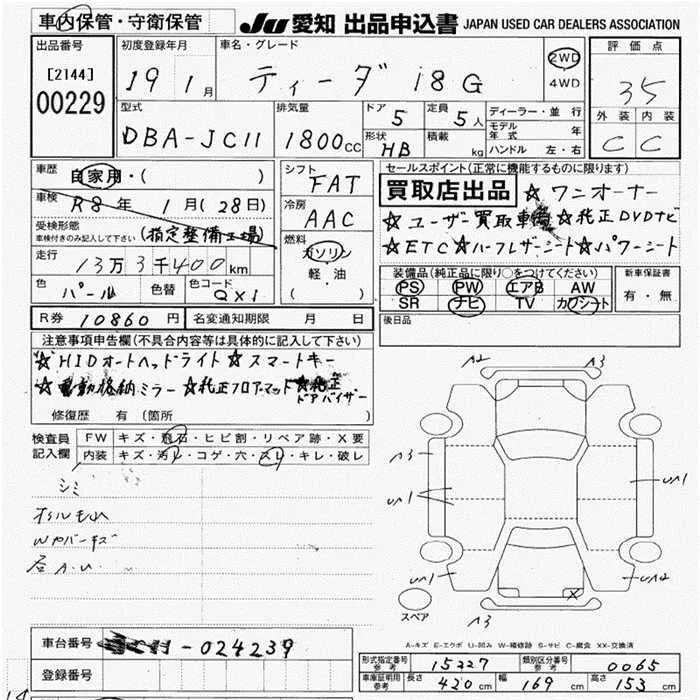 車内保管・守衛保管 JU 愛知 出品申込書 JAPAN USED CAR DEALERS ASSOCIATION
出品番号 [2144] 00229
初度登録年月 19 1月
車名・グレード ティーダ 18G
2WD 4WD
評価点 35
外装 内装 C C
型式 DBA-JC11
排気量 1800CC
ドア 5 定員 5人
形状 HB 積載 kg
ディーラー・並行
モデル年式 年
ハンドル 左・右
車歴 自家用・( )
車検 R8年 1月(28日)
受検形態 車検付きのみ記入して下さい (指定整備工場)
走行 13万3千400km
色 パール 色替 色コード QX1
シフト FAT
冷房 AAC
燃料 ガソリン 軽・油 ( )
セールスポイント(正常に機能するものに限ります)
買取店出品 ☆ワンオーナー
☆ユーザー買取車輌☆純正DVDナビ
☆ETC☆ハーフレザーシート☆パワーシート
装備品(純正品に限り○をつけてください) 新車保証書
PS PW エアB AW 有・無
SR ナビ TV カワシート
R券 10860円 名変通知期限 月 日
後日品
注意事項申告欄(不具合内容等は具体的に記入して下さい)
☆HIDオートヘッドライト☆スマートキー
☆電動格納ミラー☆純正フロアマット☆純正ドアバイザー
修復歴 有(箇所
検査員記入欄 FW キズ・飛石・ヒビ割・リペア跡・X要
内装 キズ・汚レ・コゲ・穴・スレ・キレ・破レ
シミ
A2 A3
A3 UA1 UA1
UA1 UA2
X
スペア A3
A-キズ E-エクボ U-凹み W-補修跡 S-サビ C-腐食 XX-交換済
車台番号 -024239
登録番号
形式指定番号 参考 15227 類別区分番号 参考 0065
車庫証明用 参考 長さ 420cm 幅 169cm 高さ 153cm